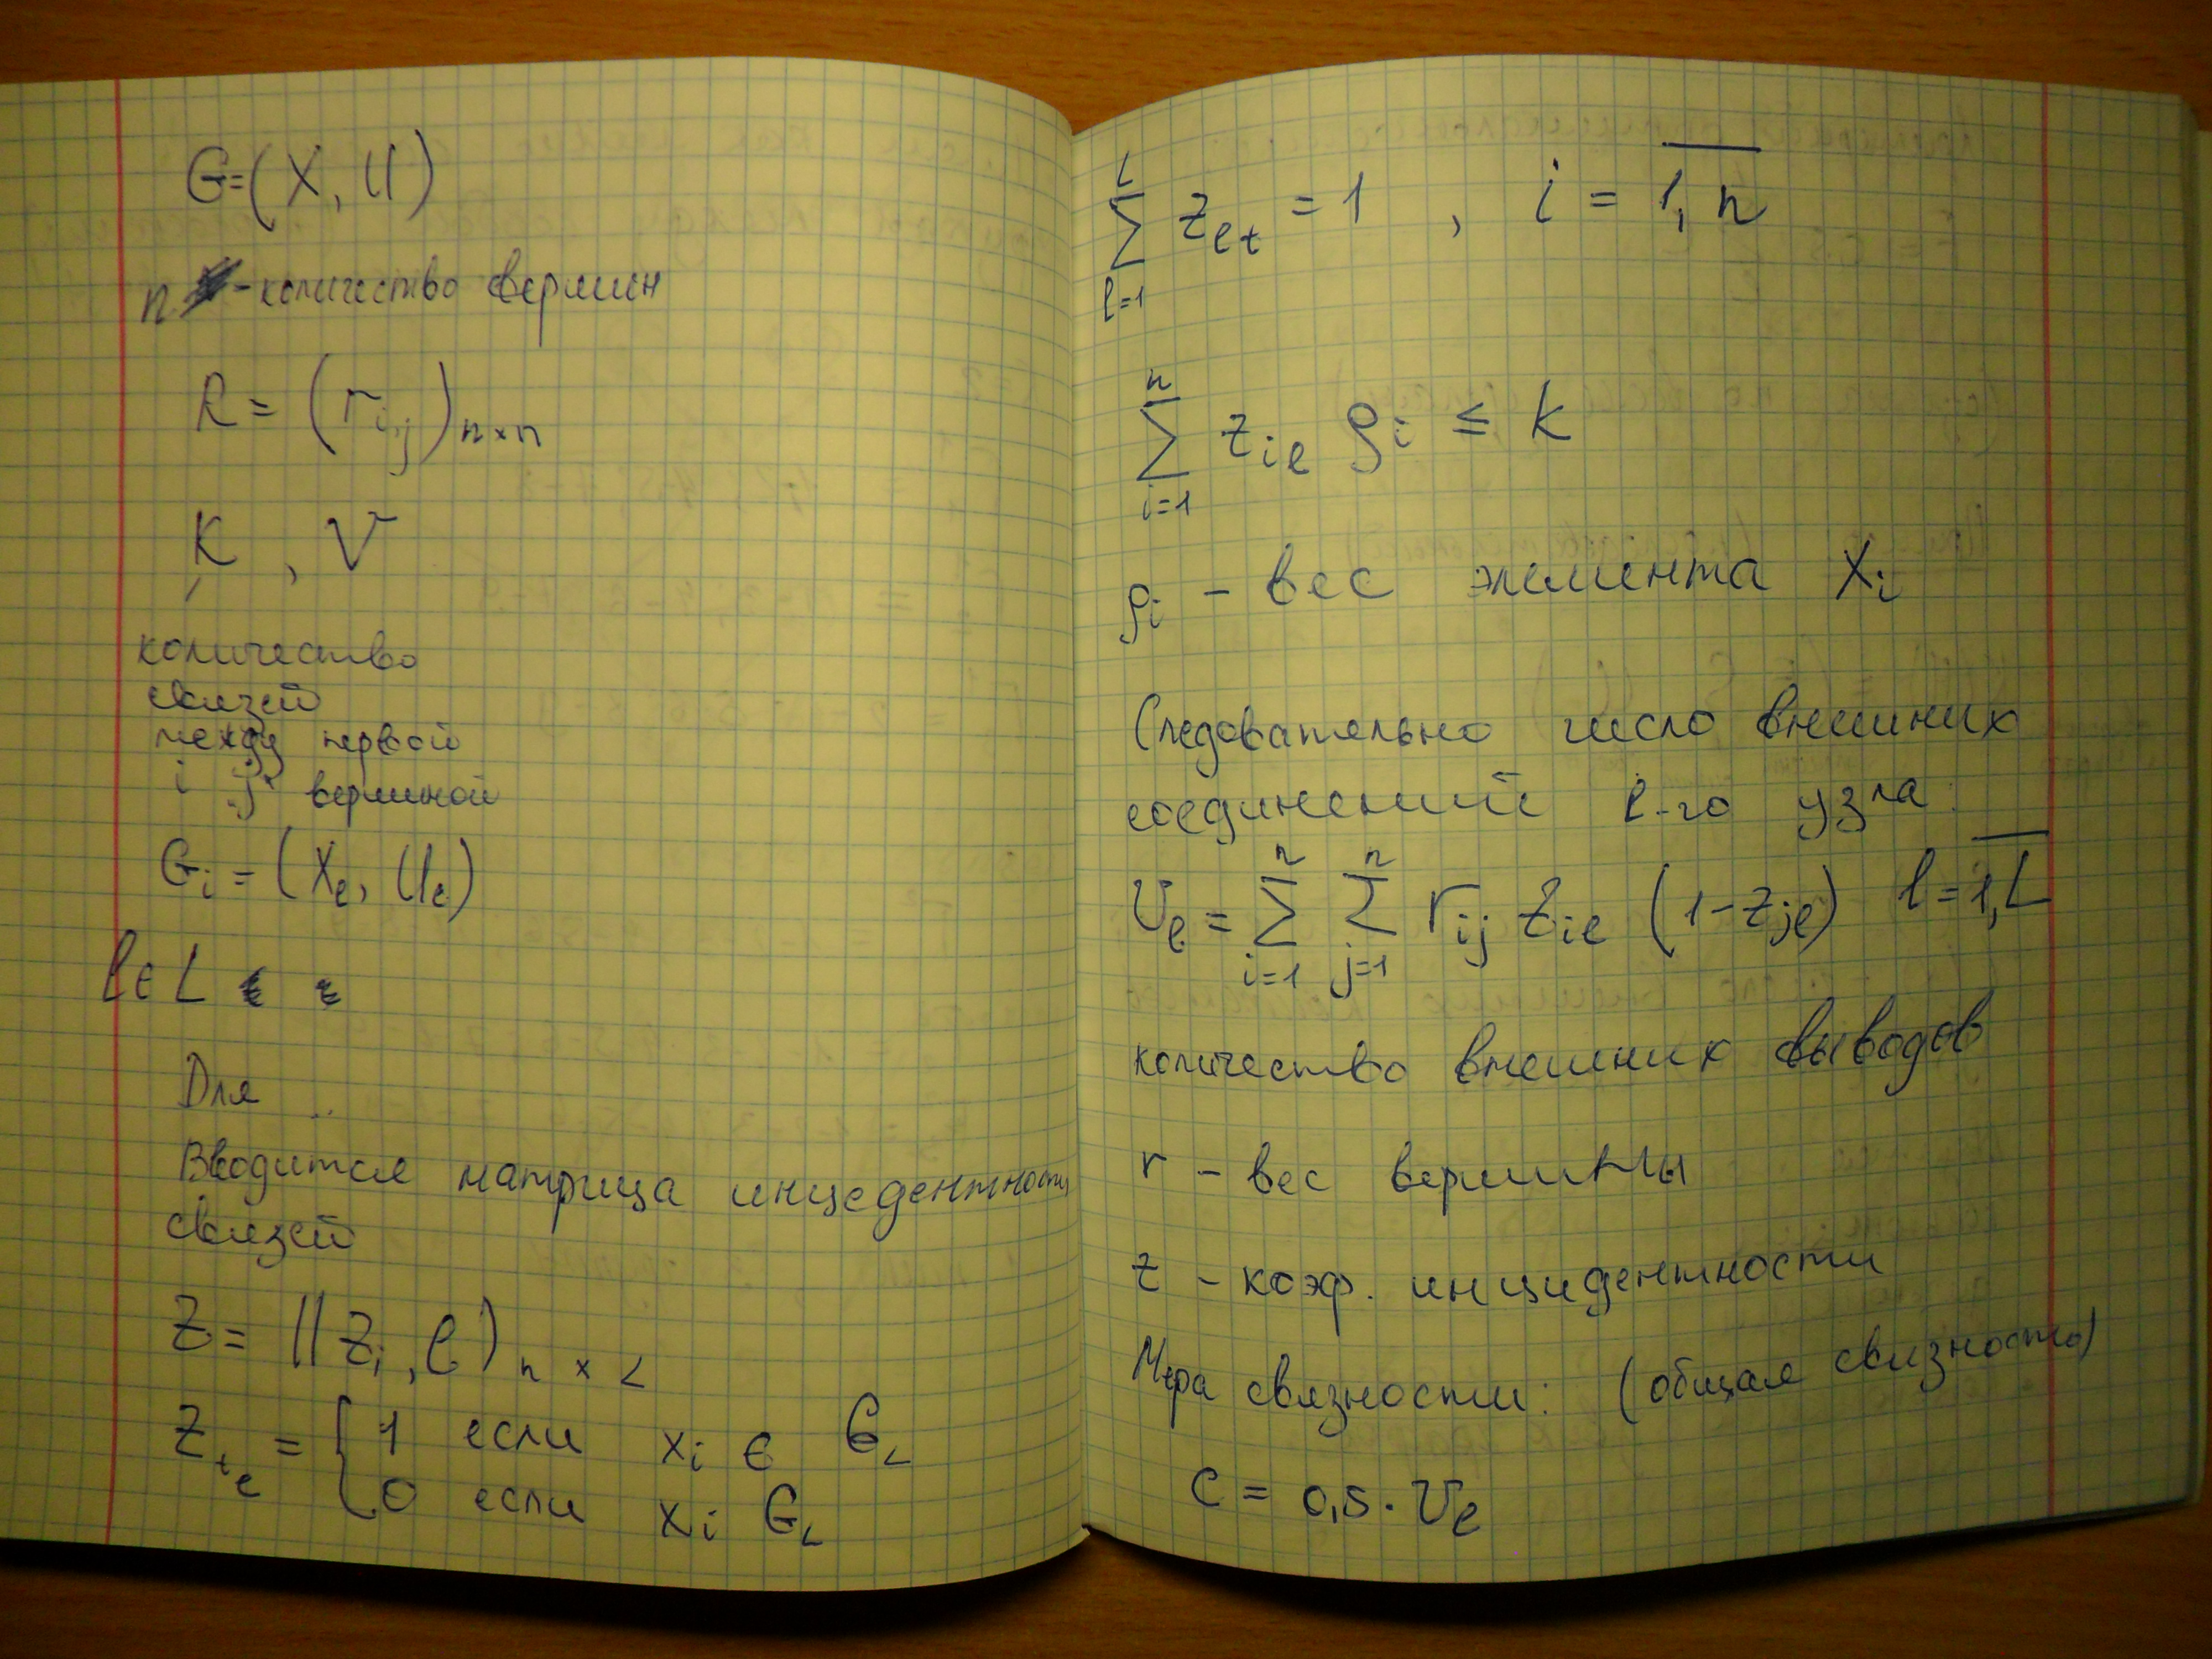 G=(X, U)
n - количество вершин
R = (r i,j) n×n
K , V
количество
связей
между первой
i j вершиной
Gi = (Xe, Ue)
l ∈ L
Для ..
Вводится матрица инцедентности
связей
Z = ||Zi,l) n × L
Z i l = { 1 если xi ∈ GL
0 если xi GL
L ∑ l=1 Z e t = 1 , i = 1, n
n ∑ i=1 z i e ρi ≤ K
ρi - вес элемента Xi
Следовательно число внешних
соединений l-го узла:
Ve = n ∑ i=1 n ∑ j=1 rij zie (1-zje) l = 1,L
количество внешних выводов
r - вес вершины
z - коэф. инцидентности
Мера связности: (общая связность)
C = 0,5 · Ve